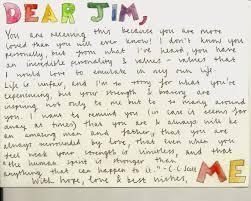 DEAR JIM,
You are receiving this because you are more
loved than you will ever know! I don't know you
personally but from what I've heard, you have
an incredible personality & values - values that
I would love to emulate in my own life.
Life is unfair, and I'm so sorry for what you're
experiencing, but your strength & bravery are
inspiring not only to me but to so many around
you. I want to remind you (in case it seems far
away at times) that you are & always will be
an amazing man and father, that you are
always surrounded by love, that even when you
feel weak your strength is limitless and that
"the human spirit is stronger than
anything that can happen to it." - C.C. Scott
With hope, love & best wishes,
ME